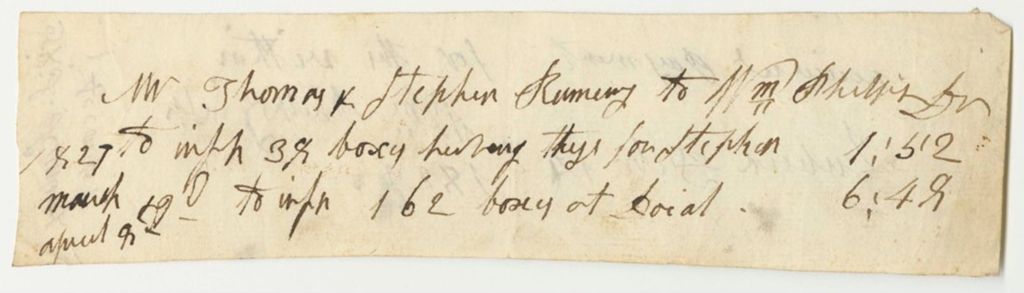 Mr Thomas & Stephen Rumery to Wm Phillips Dr
1827 to insp 38 boxes herring thgs for Stephen 1:52
march 19d to insp 162 boxes at Social. 6:48
april 8d